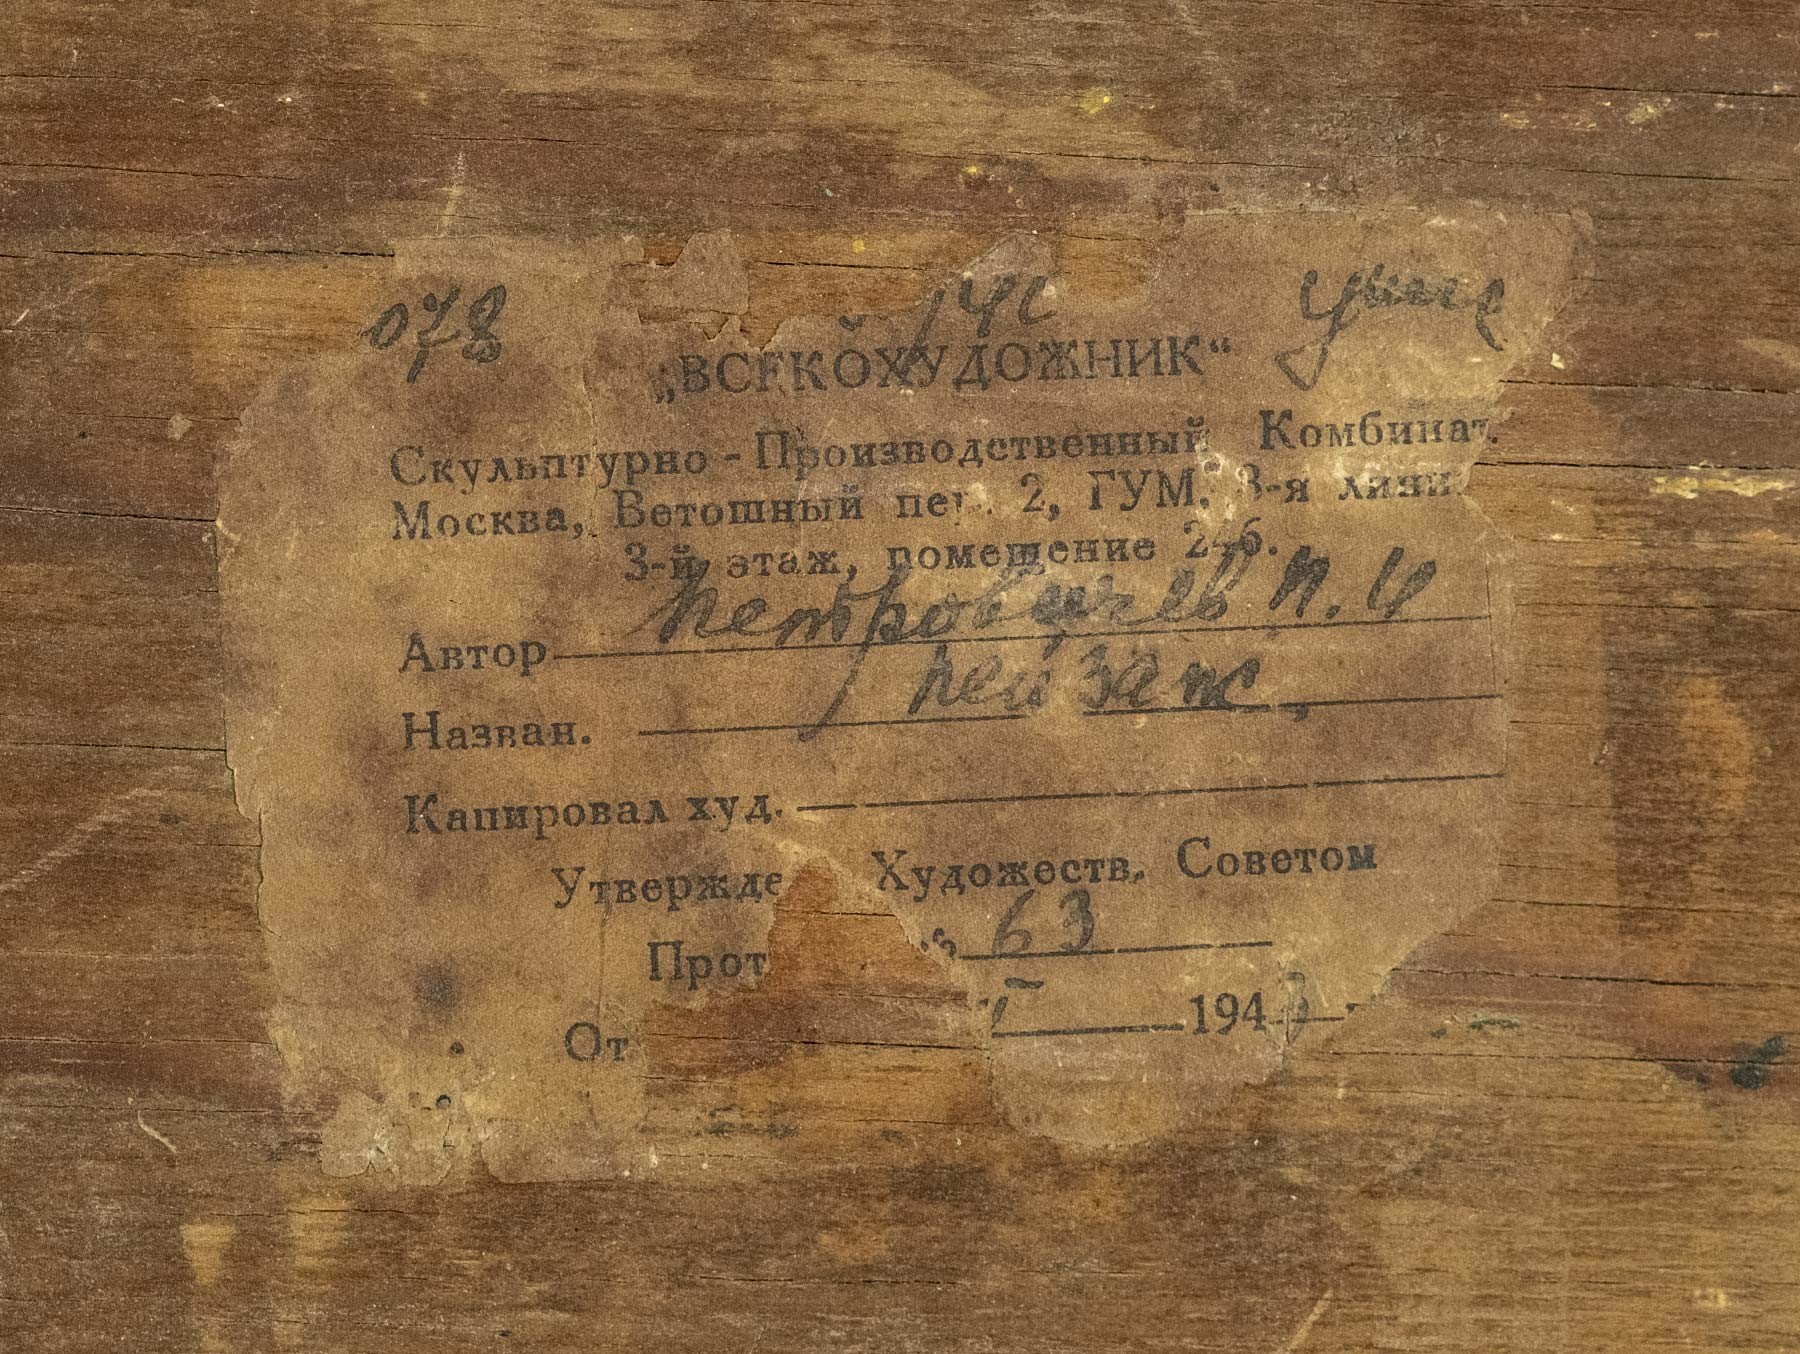 078
„ВСЕКОХУДОЖНИК“
Скульптурно-Производственный Комбинат.
Москва, Ветошный пер. 2, ГУМ, 3-я лини
3-й этаж, помещение
Автор Петровичев П. И
Назван. пейзаж,
Капировал худ.
Утвержде Художеств. Советом
Прот 63
От 194